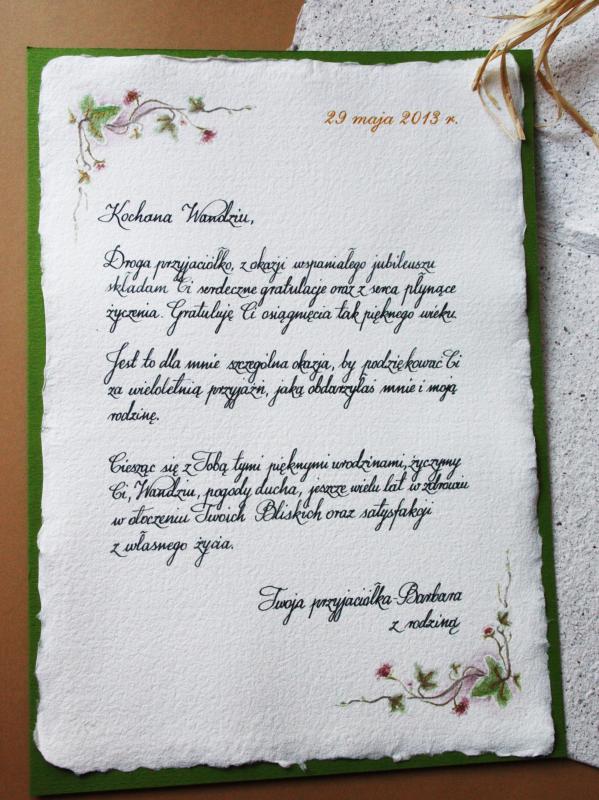 29 maja 2013 r.
Kochana Wandziu,
Droga przyjaciółko, z okazji wspaniałego jubileuszu
składam Ci serdeczne gratulacje oraz z serca płynące
życzenia. Gratuluję Ci osiągnięcia tak pięknego wieku.
Jest to dla mnie szczególna okazja, by podziękować Ci
za wieloletnią przyjaźń, jaką obdarzyłaś mnie i moją
rodzinę.
Ciesząc się z Tobą tymi pięknymi urodzinami, życzymy
Ci, Wandziu, pogody ducha, jeszcze wielu lat w zdrowiu
w otoczeniu Twoich Bliskich oraz satysfakcji
z własnego życia.
Twoja przyjaciółka-Barbara
z rodziną